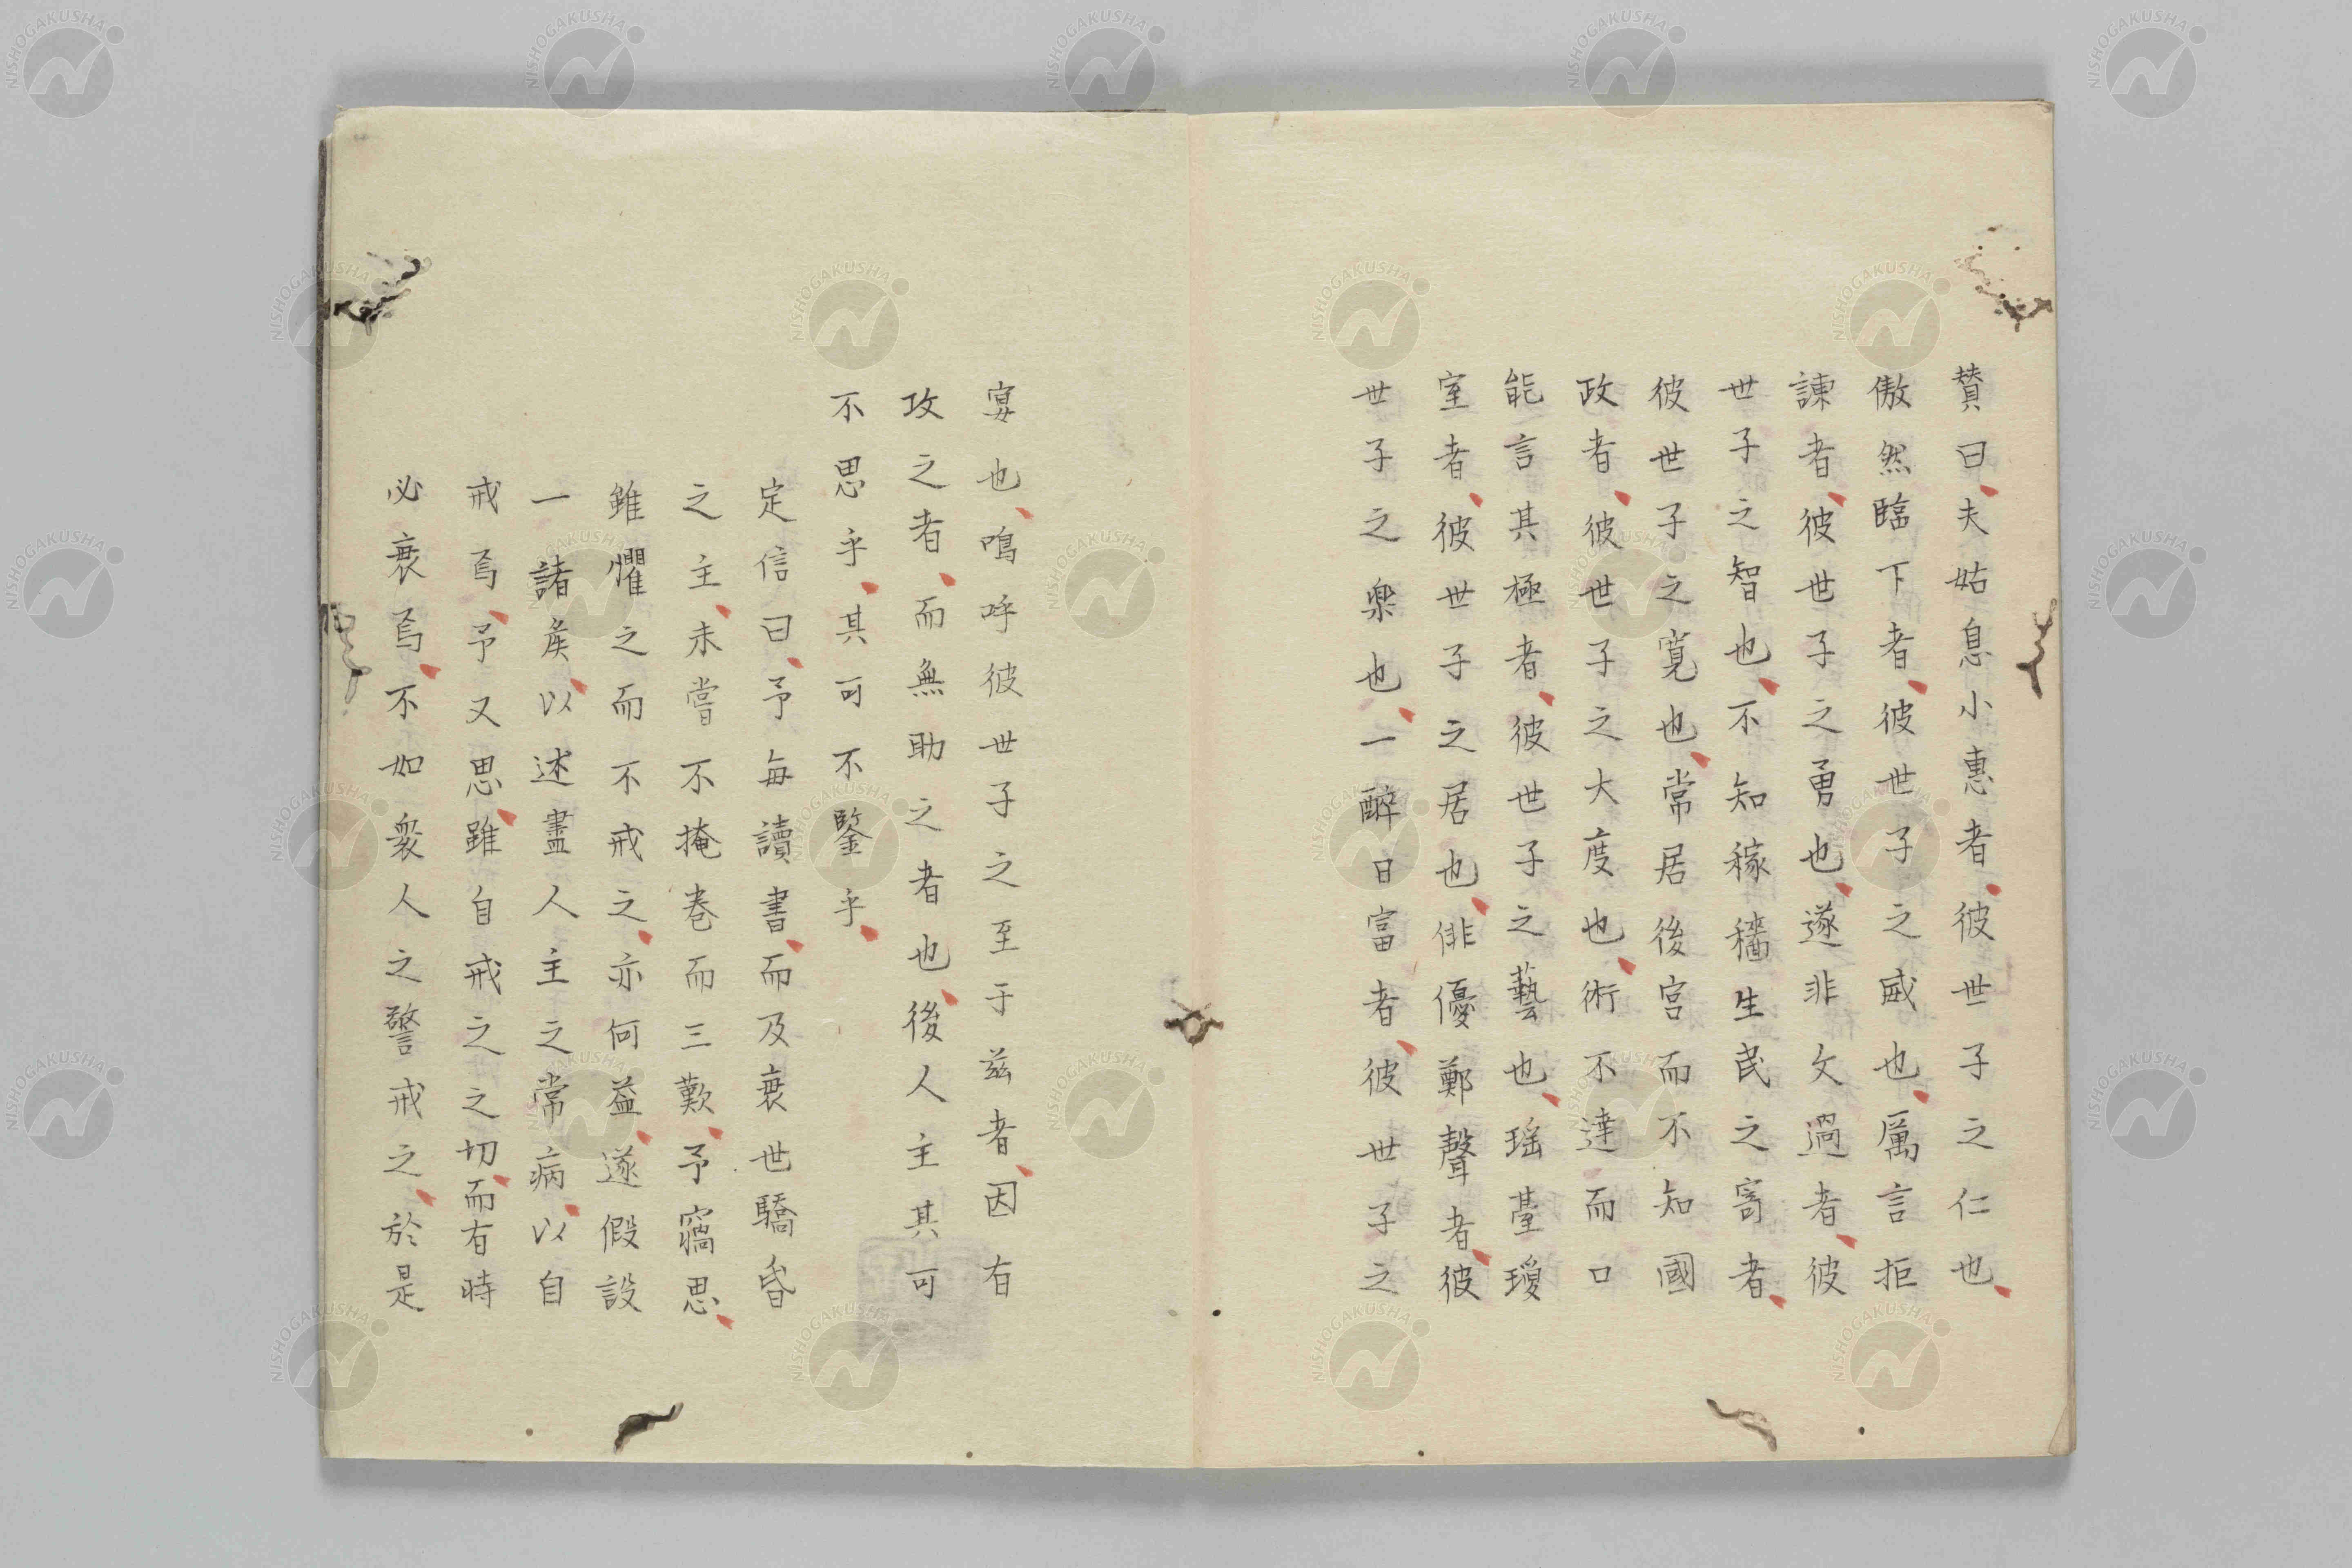 賛曰夫姑息小惠者彼世子之仁也
傲然臨下者彼世子之威也厲言拒
諫者彼世子之勇也遂非文過者彼
世子之智也不知稼穡生民之寄者
彼世子之寛也常居後宮而不知國
政者彼世子之大度也術不達而口
能言其極者彼世子之藝也瑶臺瓊
室者彼世子之居也俳優鄭聲者彼
世子之楽也一醉日富者彼世子之
宴也嗚呼彼世子之至于兹者因有
攻之者而無助之者也後人主其可
不思乎其可不鑒乎
定信曰予毎讀書而及衰世驕昏
之主未嘗不掩巻而三歎予竊思
雖懼之而不戒之亦何益遂假設
一諸矦以述盡人主之常病以自
戒焉予又思雖自戒之之切而有時
必衰焉不如衆人之警戒之於是
NISHOGAKUSHA